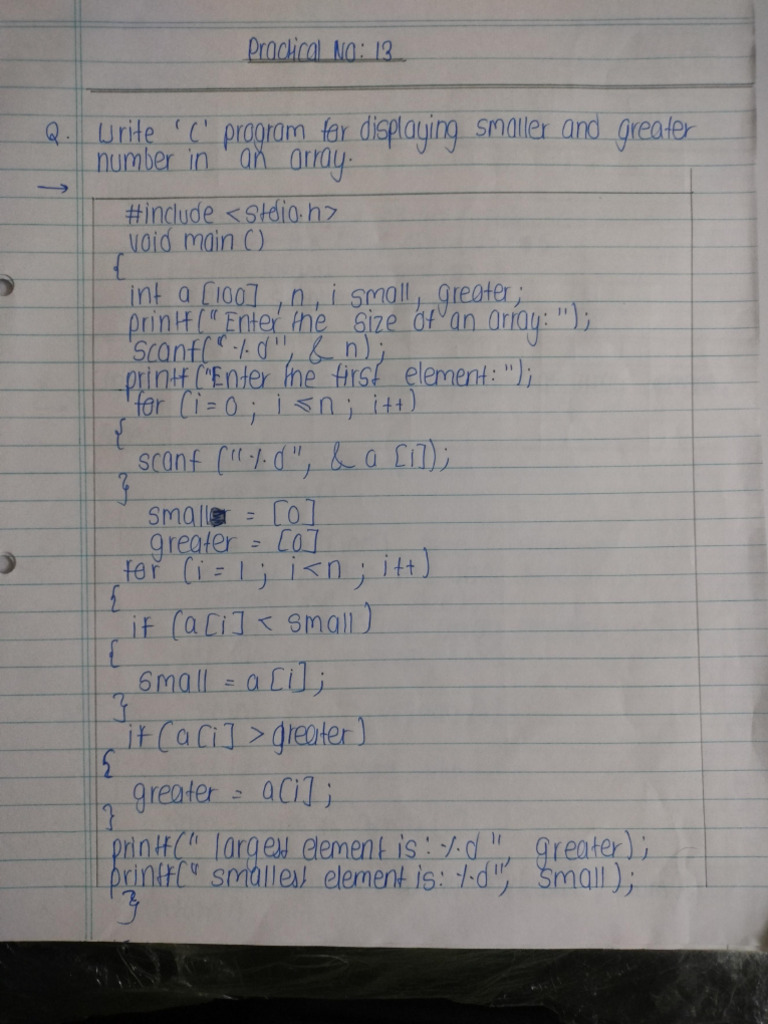 Practical No: 13
Q. Write 'C' program for displaying smaller and greater
number in an array.
→
#include <stdio.h>
void main ()
{
int a [100] , n , i small, greater;
printf("Enter the size of an array: ");
scanf("%d", & n);
printf ("Enter the first element: ");
for (i = 0 ; i ≤ n ; i++)
{
scanf ("%d", & a [i]);
}
small = [0]
greater = [0]
for (i = 1 ; i < n ; i++)
{
if (a[i] < small)
{
small = a[i];
}
if (a[i] > greater)
{
greater = a[i];
}
printf(" largest element is: %d ", greater);
printf(" smallest element is: %d", small);
}